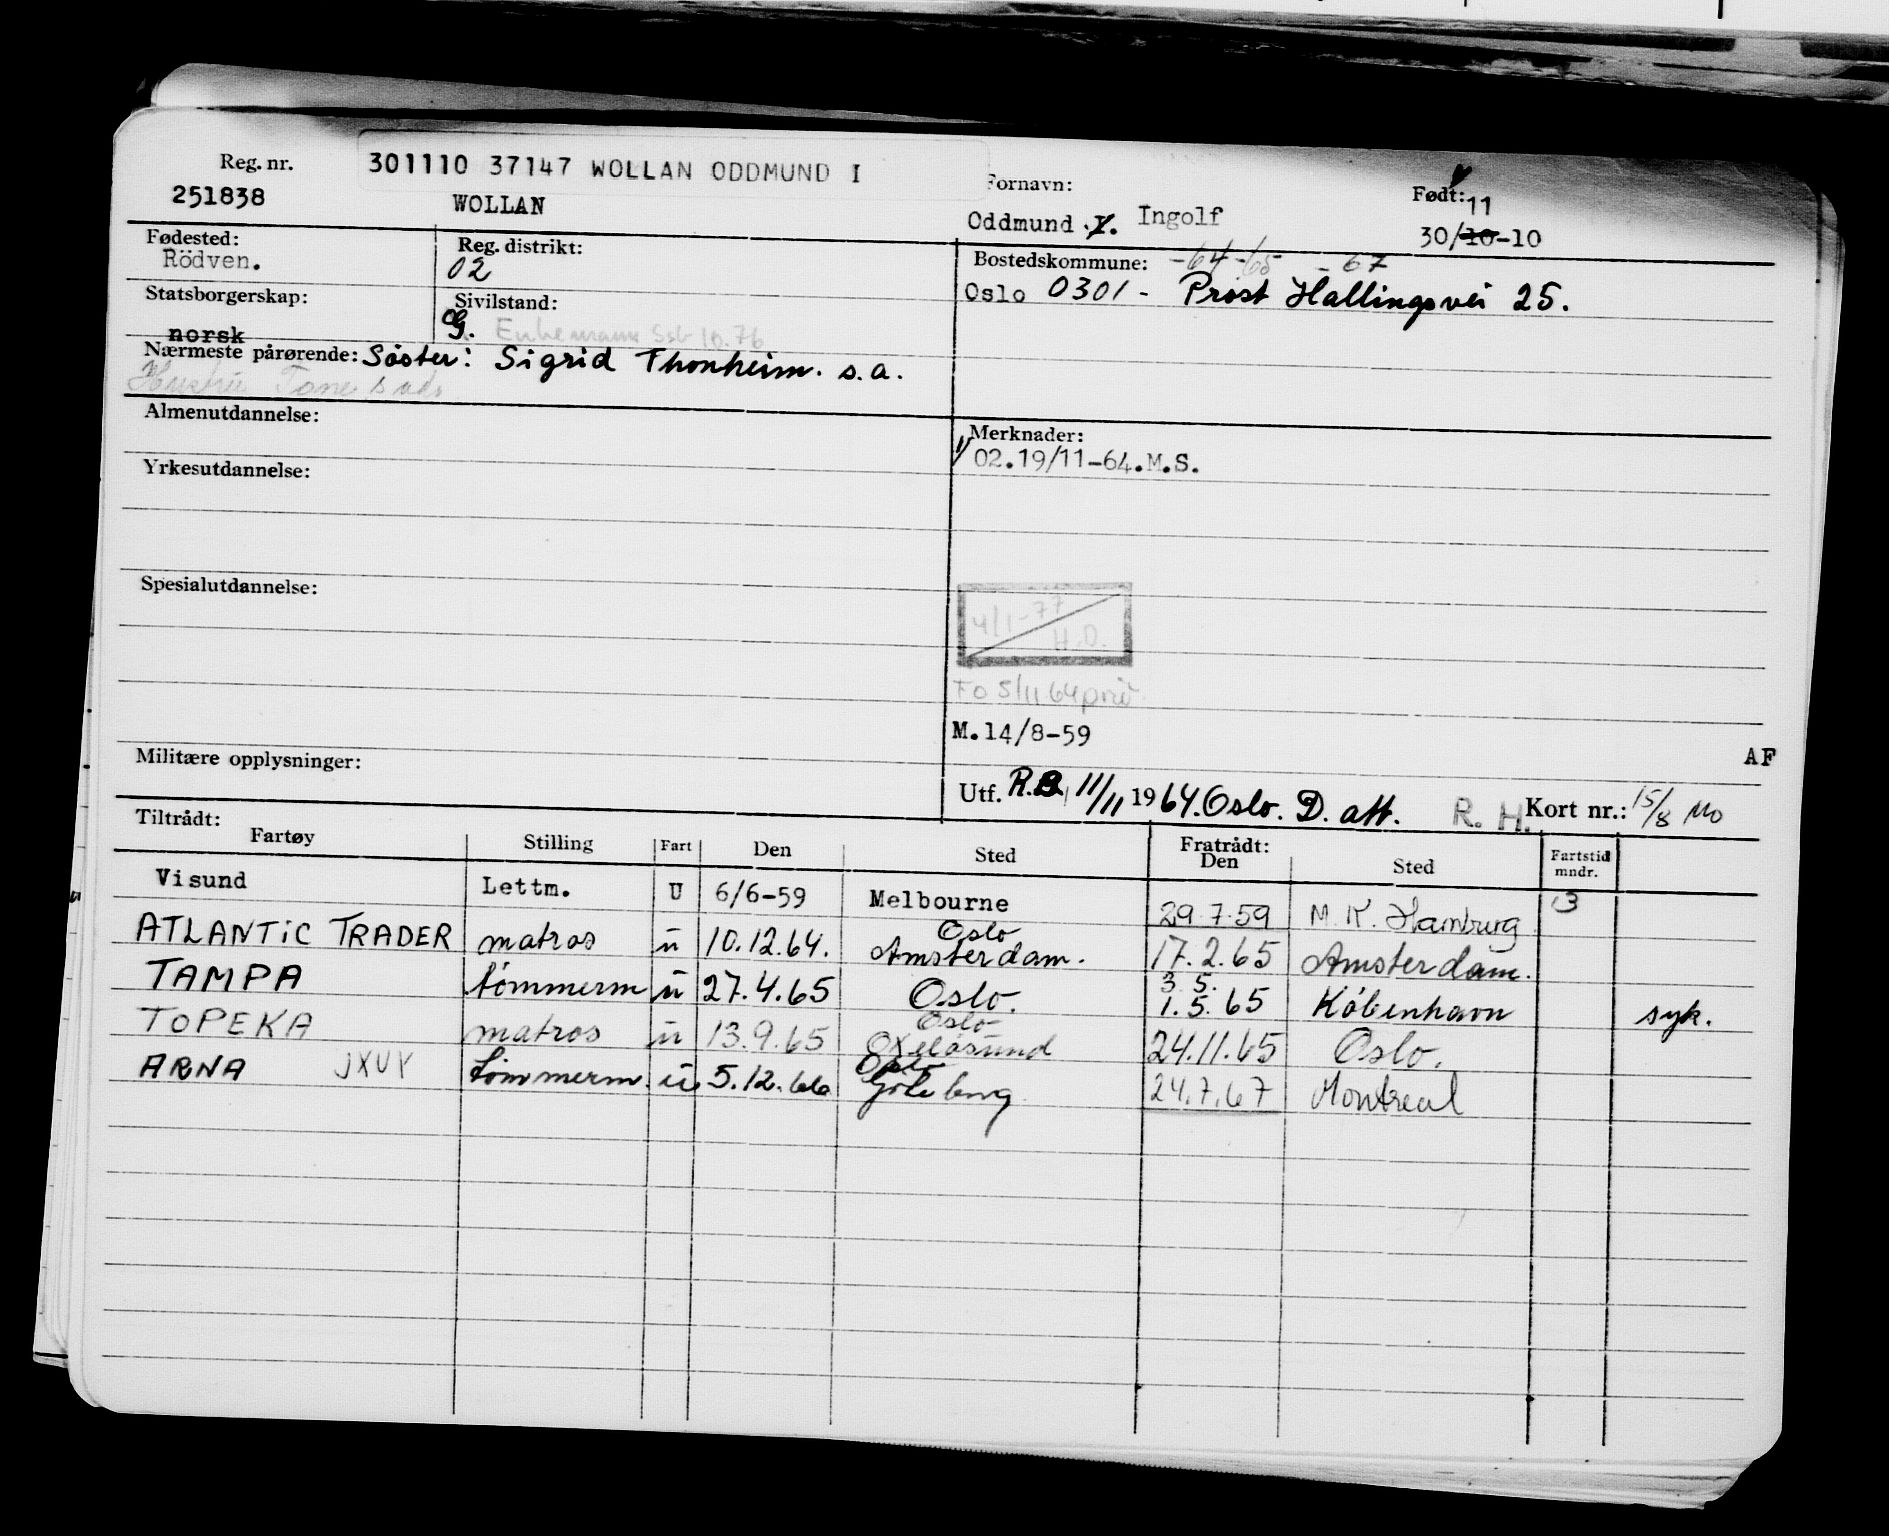 Reg. nr. 301110 37147 WOLLAN ODDMUND I Fornavn: Født:
251838 WOLLAN Oddmund I. Ingolf 11
30/10-10
Fødested: Reg. distrikt: Bostedskommune: -64-65 -67
Rödven. 02 Oslo 0301 - Prost Hallings vei 25.
Statsborgerskap: Sivilstand:
norsk G. Enkemann Ssb 10.76
Nærmeste pårørende: Søster: Sigrid Thonheim. s.a.
Hustru
Almenutdannelse: Merknader:
02.19/11-64.M.S.
Yrkesutdannelse:
Spesialutdannelse:
4/1-77
H.O.
Fo 5/11 64 priv.
M.14/8-59
AF
Militære opplysninger:
Utf. R.B, 11/11 1964. Oslo. D. att. R. H. Kort nr.: 15/8 Mo
Tiltrådt: Fratrådt:
Fartøy Stilling Fart Den Sted Den Sted Fartstid mndr.
Visund Lettm. U 6/6-59 Melbourne 29.7.59 M.K. Hamburg 3
Oslo
ATLANTIC TRADER matros u 10.12.64. Amsterdam. 17.2.65 Amsterdam.
3.5.
TAMPA tømmerm u 27.4.65 Oslo. 1.5.65 København syk.
Oslo
TOPEKA matros u 13.9.65 Oxeløsund 24.11.65 Oslo.
Oslo
ARNA JXUY tømmerm. u 5.12.66 Göteborg 24.7.67 Montreal